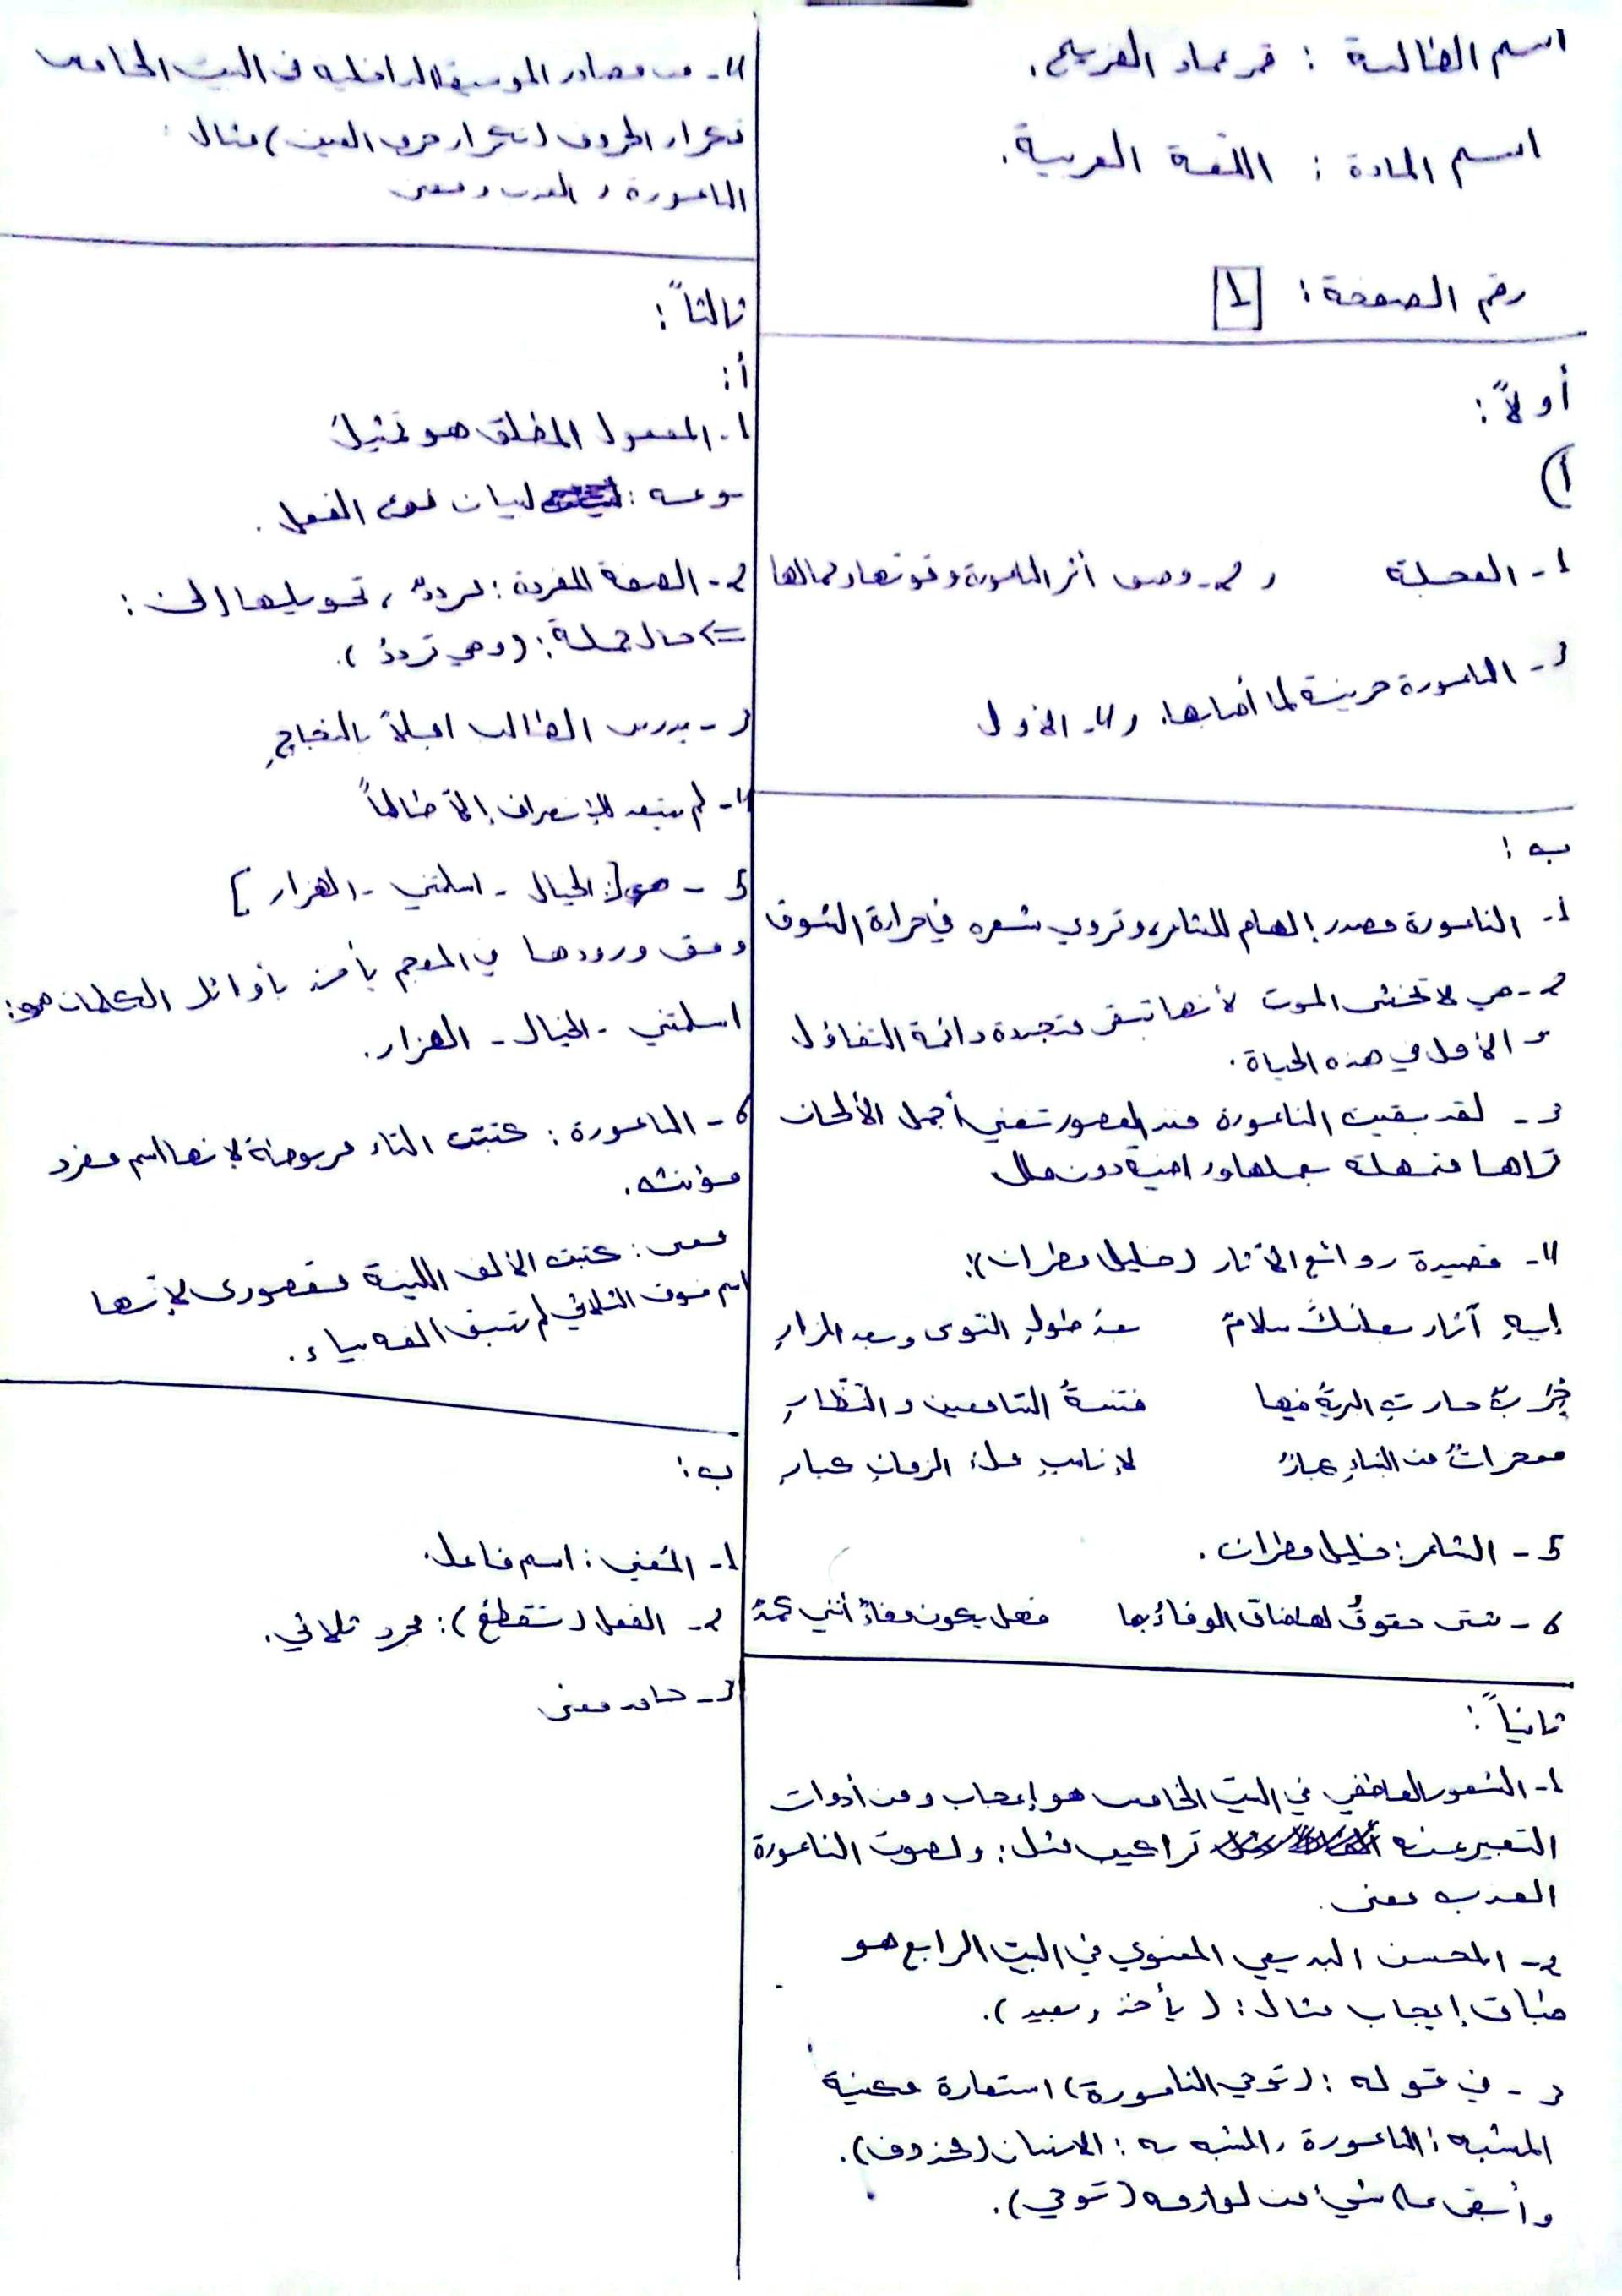 اسم الطالبة : قمر عماد الفريج.
اسم المادة : اللغة العربية.
رقم الصفحة : 1
أولاً :
أ)
1- العجلة , 2- وصف أثر الناعورة وقوتها وجمالها
3- الناعورة حزينة لما أصابها. , 4- الأول
ب :
1- الناعورة مصدر إلهام للشاعر، وتروي شعره في حرارة الشوق
2- هي لا تخشى الموت لأنها تبقى متجددة دائمة التفاؤل
و الأمل في هذه الحياة.
3- لقد بقيت الناعورة منذ العصور تغني أجمل الألحان
تراها منهملة بعملها وراضية دون ملل
4- قصيدة روائع الآثار (خليل مطران):
إيهِ آثار بعلبكَّ سلامٌ بعدَ طولِ النّوى وبعد المزارِ
خِرَبٌ حارتِ البريّةُ فيها فتنةُ السّامعين و النّظّارِ
معجزاتٌ من البناءِ كبارٌ لإناسٍ ملءَ الزمانِ كبارِ
5- الشاعر: خليل مطران.
6- شتى حقوقٌ لها ضاق الوفاءُ بها فهل يكون وفاءً أنني كمدُ
ثانياً :
1- الشعور العاطفي في البيت الخامس هو إعجاب ومن أدوات
التعبير عنه تراكيب مثل: ولصوت الناعورة
العذب معنى.
2- المحسن البديعي المعنوي في البيت الرابع هو
طباق إيجاب مثال : ( يأخذ , يعيد ).
3- في قوله : (توحي الناعورة) استعارة مكنية
المشبه : الناعورة , المشبه به : الانسان (محذوف).
وأبقى على شيء من لوازمه (توحي).
4- من مصادر الموسيقا الداخلية في البيت الخامس
تكرار الحروف (تكرار حرف العين) مثال :
الناعورة , العذب , معنى
ثالثاً :
أ :
1- المفعول المطلق هو تمثيل
نوعه : لبيان نوع الفعل.
2- الصفة المفردة : , تحويلها إلى :
=> حال جملة : (وهي تردد ).
3- يدرس الطالب املاً بالنجاحِ
4- لم ينقد للإنصراف إلا طالباً
5- [: الخيال - اسلمتني - الهزار ]
وفق ورودها في المعجم يأخذ بأوائل الكلمات هو:
اسلمتني - الخيال - الهزار.
6- الناعورة : كتبت التاء مربوطة لانها اسم مفرد
مؤنث.
معنى : كتبت الألف اللينة مقصورة لأنها
اسم فوق الثلاثي لم تسبق الفه بياء.
ب :
1- المغني : اسم فاعل.
2- الفعل (تنقطع) : مجرد ثلاثي.
3- جامد معنى